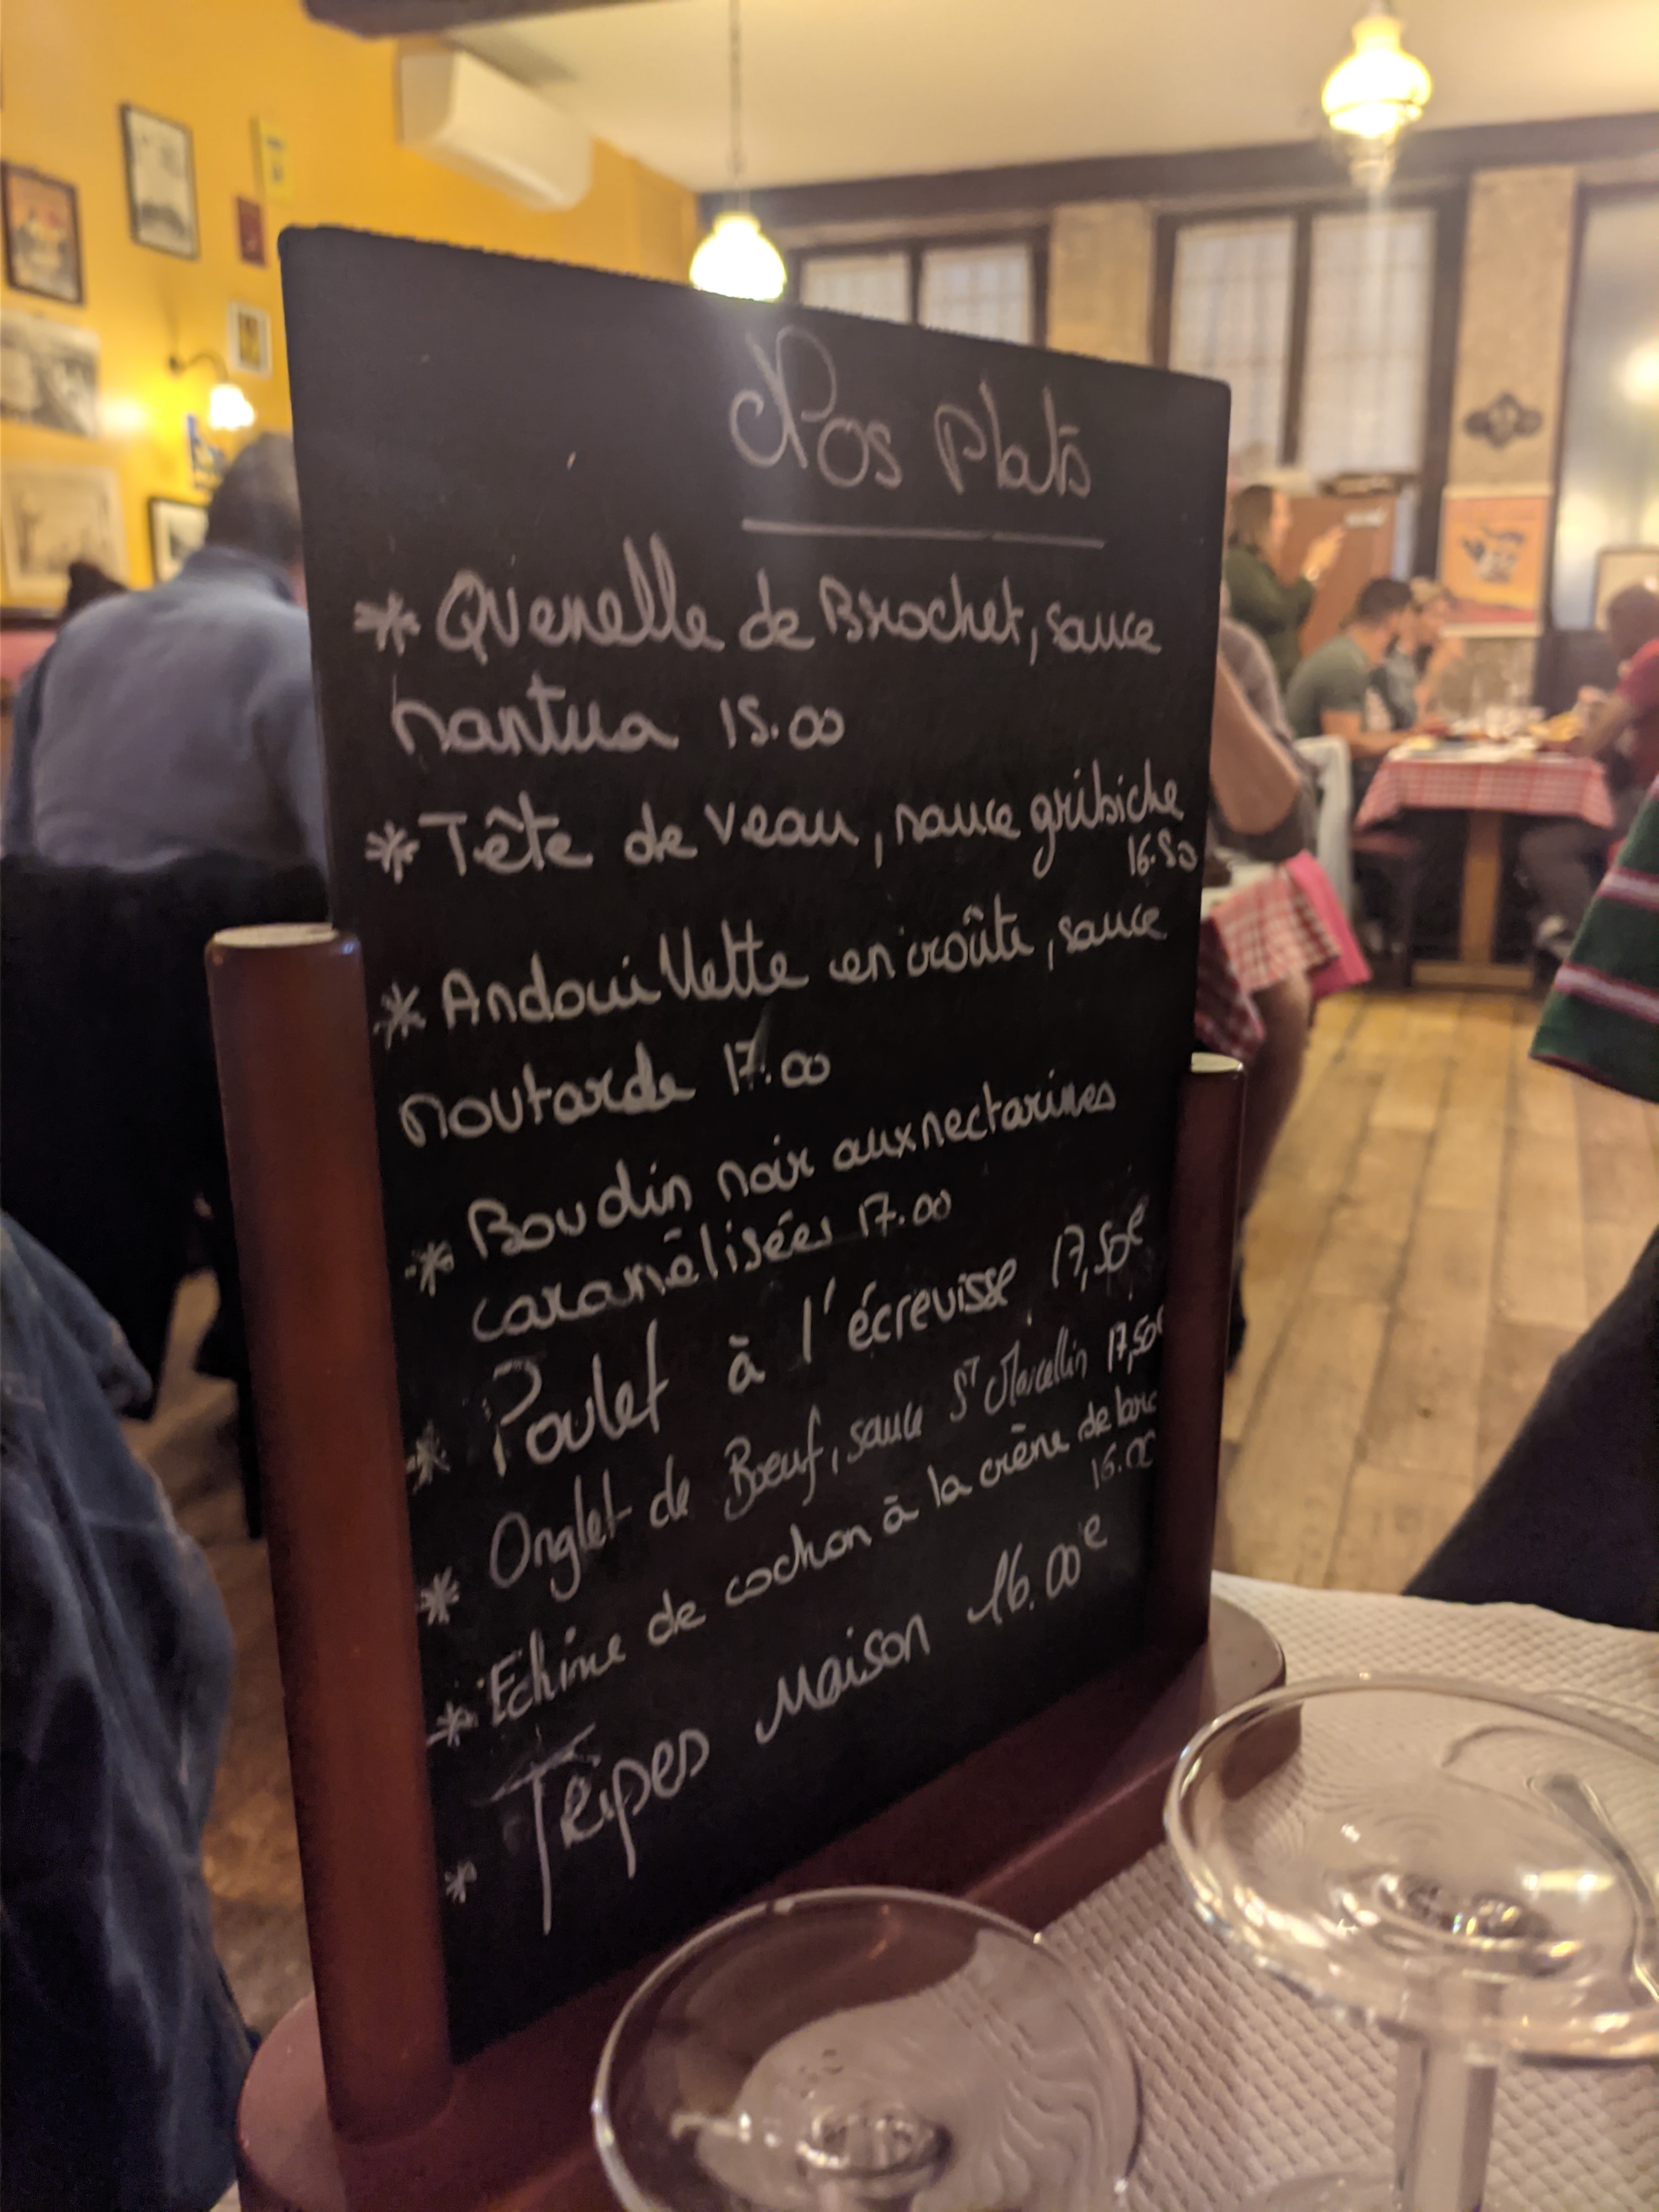 Nos Plats
* Quenelle de Brochet, sauce
nantua 15.00
* Tête de veau, sauce gribiche
16.50
* Andouillette en croûte, sauce
moutarde 17.00
* Boudin noir aux nectarines
caramélisées 17.00
* Poulet à l'écrevisse 17,50€
* Onglet de Bœuf, sauce St Marcellin 17,50€
* Echine de cochon à la crème de lard
16.00
* Tripes Maison 16.00€